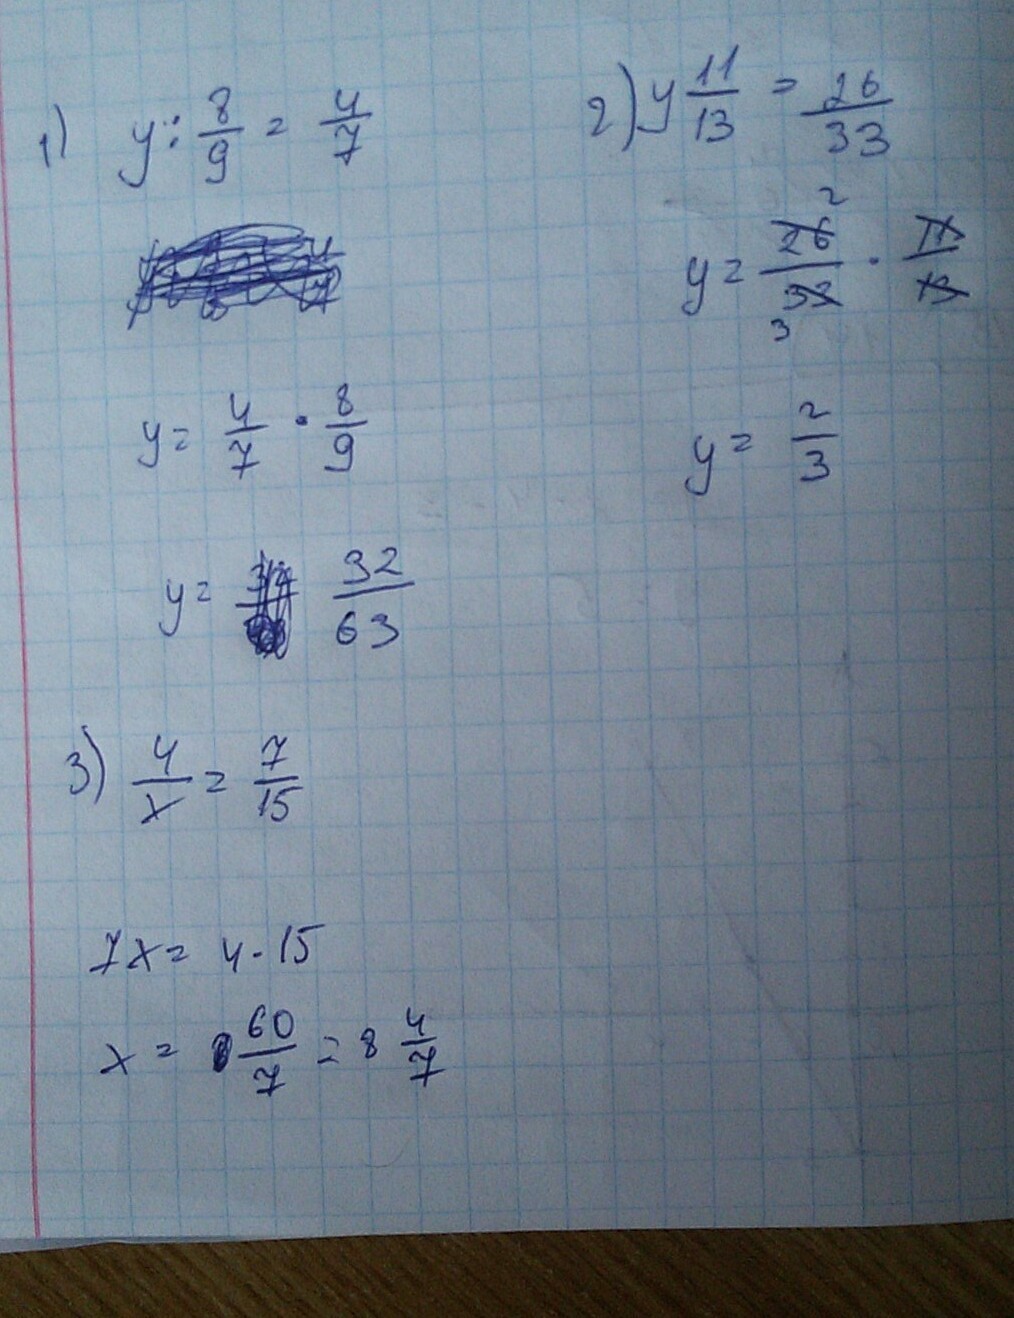 1) y : 8/9 = 4/7
y = 4/7 · 8/9
y = 32/63
2) y 11/13 = 26/33
y = 26/33 · 11/13
2
3
y = 2/3
3) 4/x = 7/15
7x = 4 · 15
x = 60/7 = 8 4/7